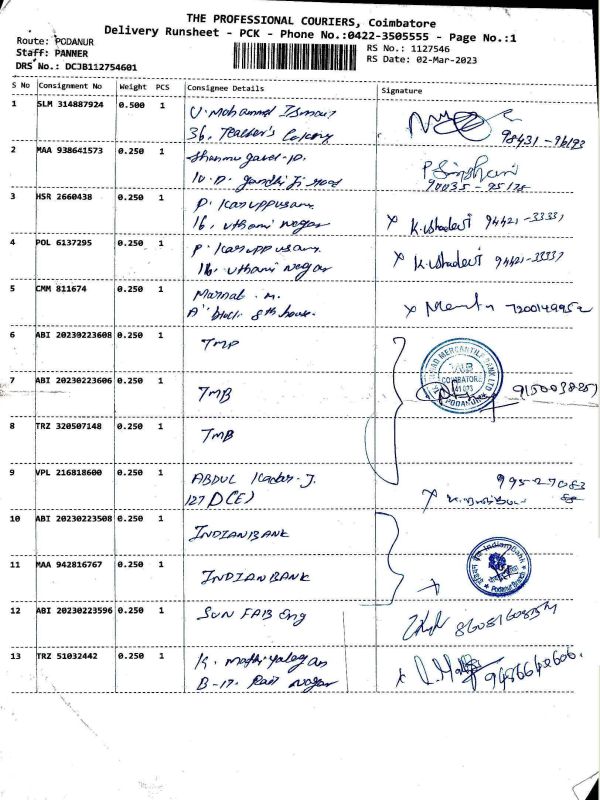 THE PROFESSIONAL COURIERS, Coimbatore
Delivery Runsheet - PCK - Phone No.:0422-3505555 - Page No.:1
Route: PODANUR
Staff: PANNER
DRS No.: DCJB112754601
RS No.: 1127546
RS Date: 02-Mar-2023
S No Consignment No Weight PCS Consignee Details Signature
1 SLM 314887924 0.500 1 U. Mohammed
36, Teacher's Colony
2 MAA 938641573 0.250 1
10. D. Gandhiji Road
3 HSR 2660438 0.250 1 P. Karuppusamy
16, Uthami Nagar
K. Ushadevi 94421-33331
4 POL 6137295 0.250 1 P. Karuppusamy
16, Uthami Nagar
K. Ushadevi 94421-33331
5 CMM 811674 0.250 1
A" block 8th house.
7200149952
6 ABI 20230223608 0.250 1 TMB
7 ABI 20230223606 0.250 1 TMB
MERCANTILE BANK LTD
COIMBATORE
PODANUR
8 TRZ 320507148 0.250 1 TMB
9 VPL 216818600 0.250 1 ABDUL Kadar. J.
127 D(E)
10 ABI 20230223508 0.250 1 INDIAN BANK
11 MAA 942816767 0.250 1 INDIAN BANK
Indian Bank
Podanur Branch
12 ABI 20230223596 0.250 1 SUN FAB Eng
13 TRZ 51032442 0.250 1 K. Mathiyalagan
B-17. Nagar